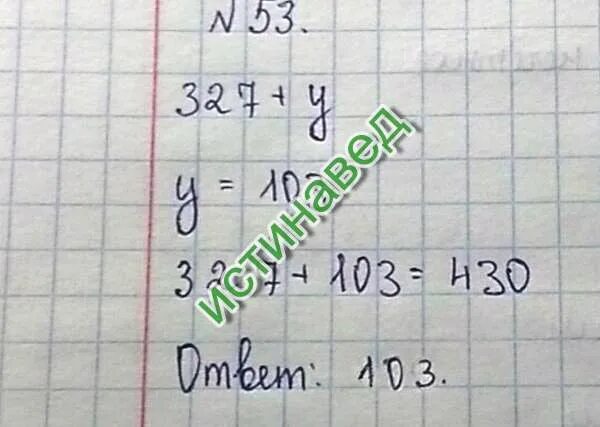 N 53.
327 + y
y = 103
327 + 103 = 430
Ответ: 103.
истинавед